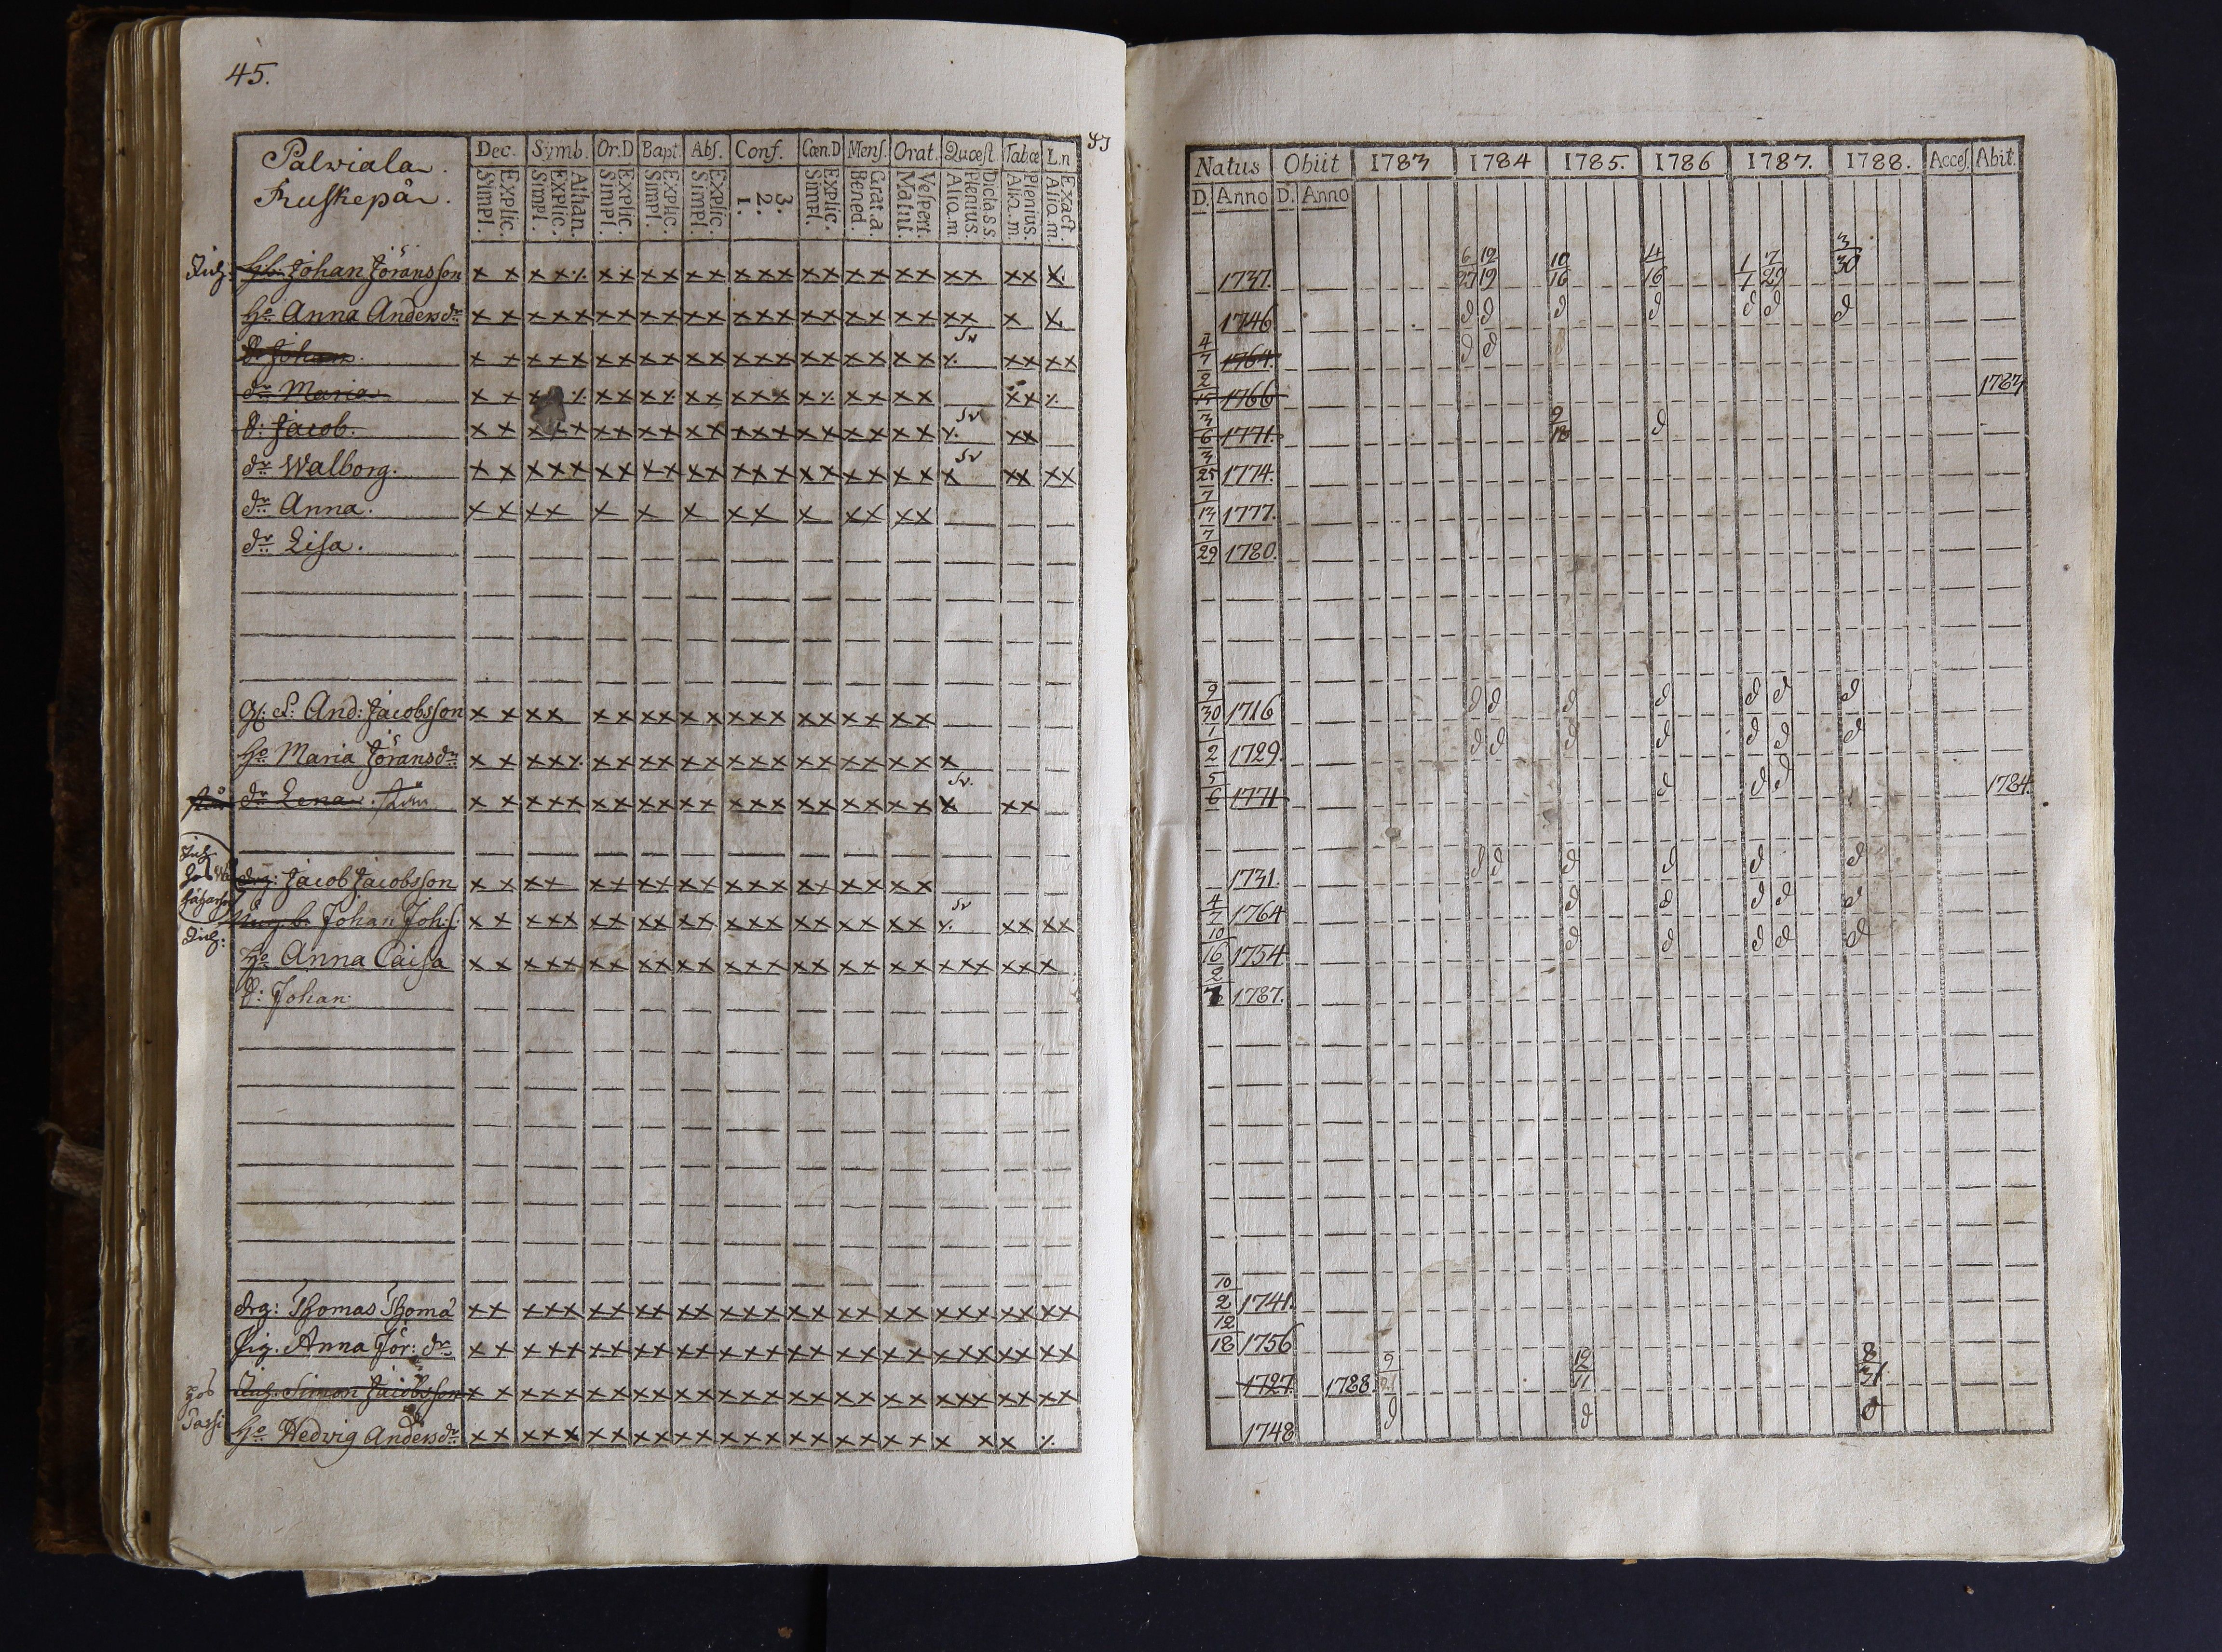 45.
83
Palviala.
Kuskepär.
Dec. Symb. Or.D Bapt Abs. Conf. Cœn.D Mens. Orat. Quœst. Tabœ L.n
Simpl. Explic. Simpl. Explic. Athan. Simpl. Explic. Simpl. Explic. Simpl. Explic. 1. 2. 3. Simpl. Explic. Bened. Grat.a. Matut. Vespert. Alio.m. Plenius. Dicta s s. Alio.m. Plenius. Alio.m. Exact.
Johan Jöransson x x x x ⁒ x x x x x x x x x x x x x x x x x x x x
Ho Anna Andersdr x x x x x x x x x x x x x x x x x x x x x x x
Johan x x x x x x x x x x x x x x x x x x x ⁒ x x x x
Sv
dr Maria x x x ⁒ x x x ⁒ x x x x x x ⁒ x x x x x x ⁒
S: Jacob. x x x x x x x x x x x x x x x x x x x ⁒ x x
Sv
dr Walborg. x x x x x x x x x x x x x x x x x x x x x x x x
Sv
dr Anna. x x x x x x x x x x x x x x
dr Lisa.
And: Jacobsson x x x x x x x x x x x x x x x x x x
Ho Maria Jöransdr x x x x ⁒ x x x x x x x x x x x x x x x x
dr Lena x x x x x x x x x x x x x x x x x x x x x x
Sv.
Jacob Jacobsson x x x x x x x x x x x x x x x x x x
Johan Joh.s: x x x x x x x x x x x x x x x x x x x ⁒ x x x x
Sv
Ho Anna Caisa x x x x x x x x x x x x x x x x x x x x x x x x x x
S: Johan
drg: Thomas Thoma x x x x x x x x x x x x x x x x x x x x x x x x x x
Pig. Anna Jör: dr x x x x x x x x x x x x x x x x x x x x x x x x x x
Simon Jacobsson x x x x x x x x x x x x x x x x x x x x x x x x x x
Ho Hedvig Andersdr x x x x x x x x x x x x x x x x x x x x x x ⁒
Natus Obiit 1783 1784 1785. 1786 1787. 1788. Acces. Abit.
D. Anno D. Anno
1737. 6/27 12/19 10/16 4/16 1/1 7/29 3/30
1746 d d d d d d d
4/7 1764. d d
2/15 1766 1783
3/6 1771. 9/18 d
3/25 1774.
7/13 1777.
7/29 1780.
9/30 1716 d d d d d d d
1/2 1729. d d d d d d d
5/6 1771 d d d 1784.
1731. d d d d d d
4/7 1764 d d d d d
10/16 1754 d d d d d
2/7 1787.
10/2 1741.
12/18 1756
1727. 1788. 9/21 12/11 8/31
1748 d d d